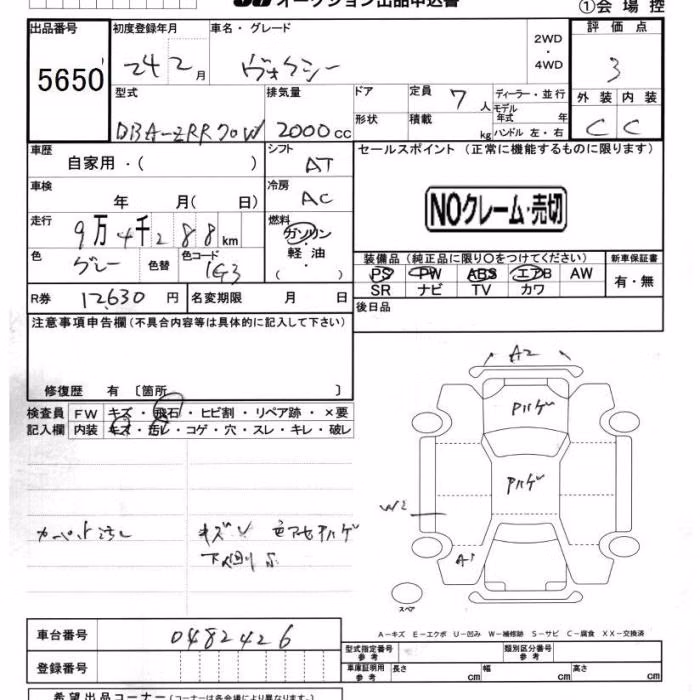 オークション出品申込書 ①会場控
出品番号 初度登録年月 車名・グレード 2WD・4WD 評価点
5650 24 2月 ヴォクシー 3
型式 排気量 ドア 定員 7人 ディーラー・並行 外装 内装
モデル年式 年
DBA-ZRR70W 2000cc 形状 積載 kg ハンドル 左・右 C C
車歴 自家用・( ) シフト AT セールスポイント(正常に機能するものに限ります)
車検 年 月( 日) 冷房 AC
NOクレーム・売切
走行 9万4千288km 燃料 ガソリン・軽油・( )
色 グレー 色替 色コード 1G3
装備品(純正品に限り○をつけてください) 新車保証書
PS PW ABS エアB AW 有・無
SR ナビ TV カワ
R券 12,630円 名変期限 月 日 後日品
注意事項申告欄(不具合内容等は具体的に記入して下さい)
修復歴 有〔箇所 〕
検査員 FW キズ・飛石・ヒビ割・リペア跡・×要
記入欄 内装 キズ・汚レ・コゲ・穴・スレ・キレ・破レ
A2
ハゲ
ハゲ
W2
A1
カーペット汚レ
キズ
スペア
A−キズ E−エクボ U−凹み W−補修跡 S−サビ C−腐食 XX−交換済
車台番号 0482426
型式指定番号 参考 類別区分番号 参考
登録番号 車庫証明用 参考 長さ cm 幅 cm 高さ cm
希望出品コーナー(コーナーは各会場により異なります)